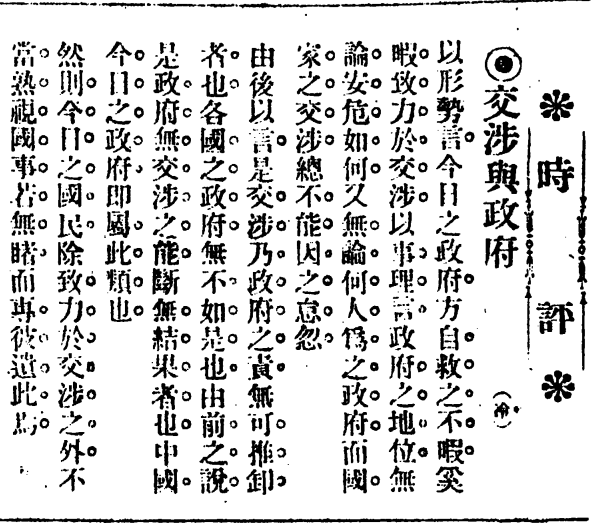 時評
◉交涉與政府
(冷)
以形勢言今日之政府方自救之不暇奚
暇致力於交涉以事理言政府之地位無
論安危如何又無論何人爲之政府而國
家之交涉總不能因之怠忽
由後以言是交涉乃政府之責無可推卸
者也各國之政府無不如是也由前之說
是政府無交涉之能斷無結果者也中國
今日之政府卽屬此類也
然則今日之國民除致力於交涉之外不
當熟視國事若無睹而專彼遣此爲